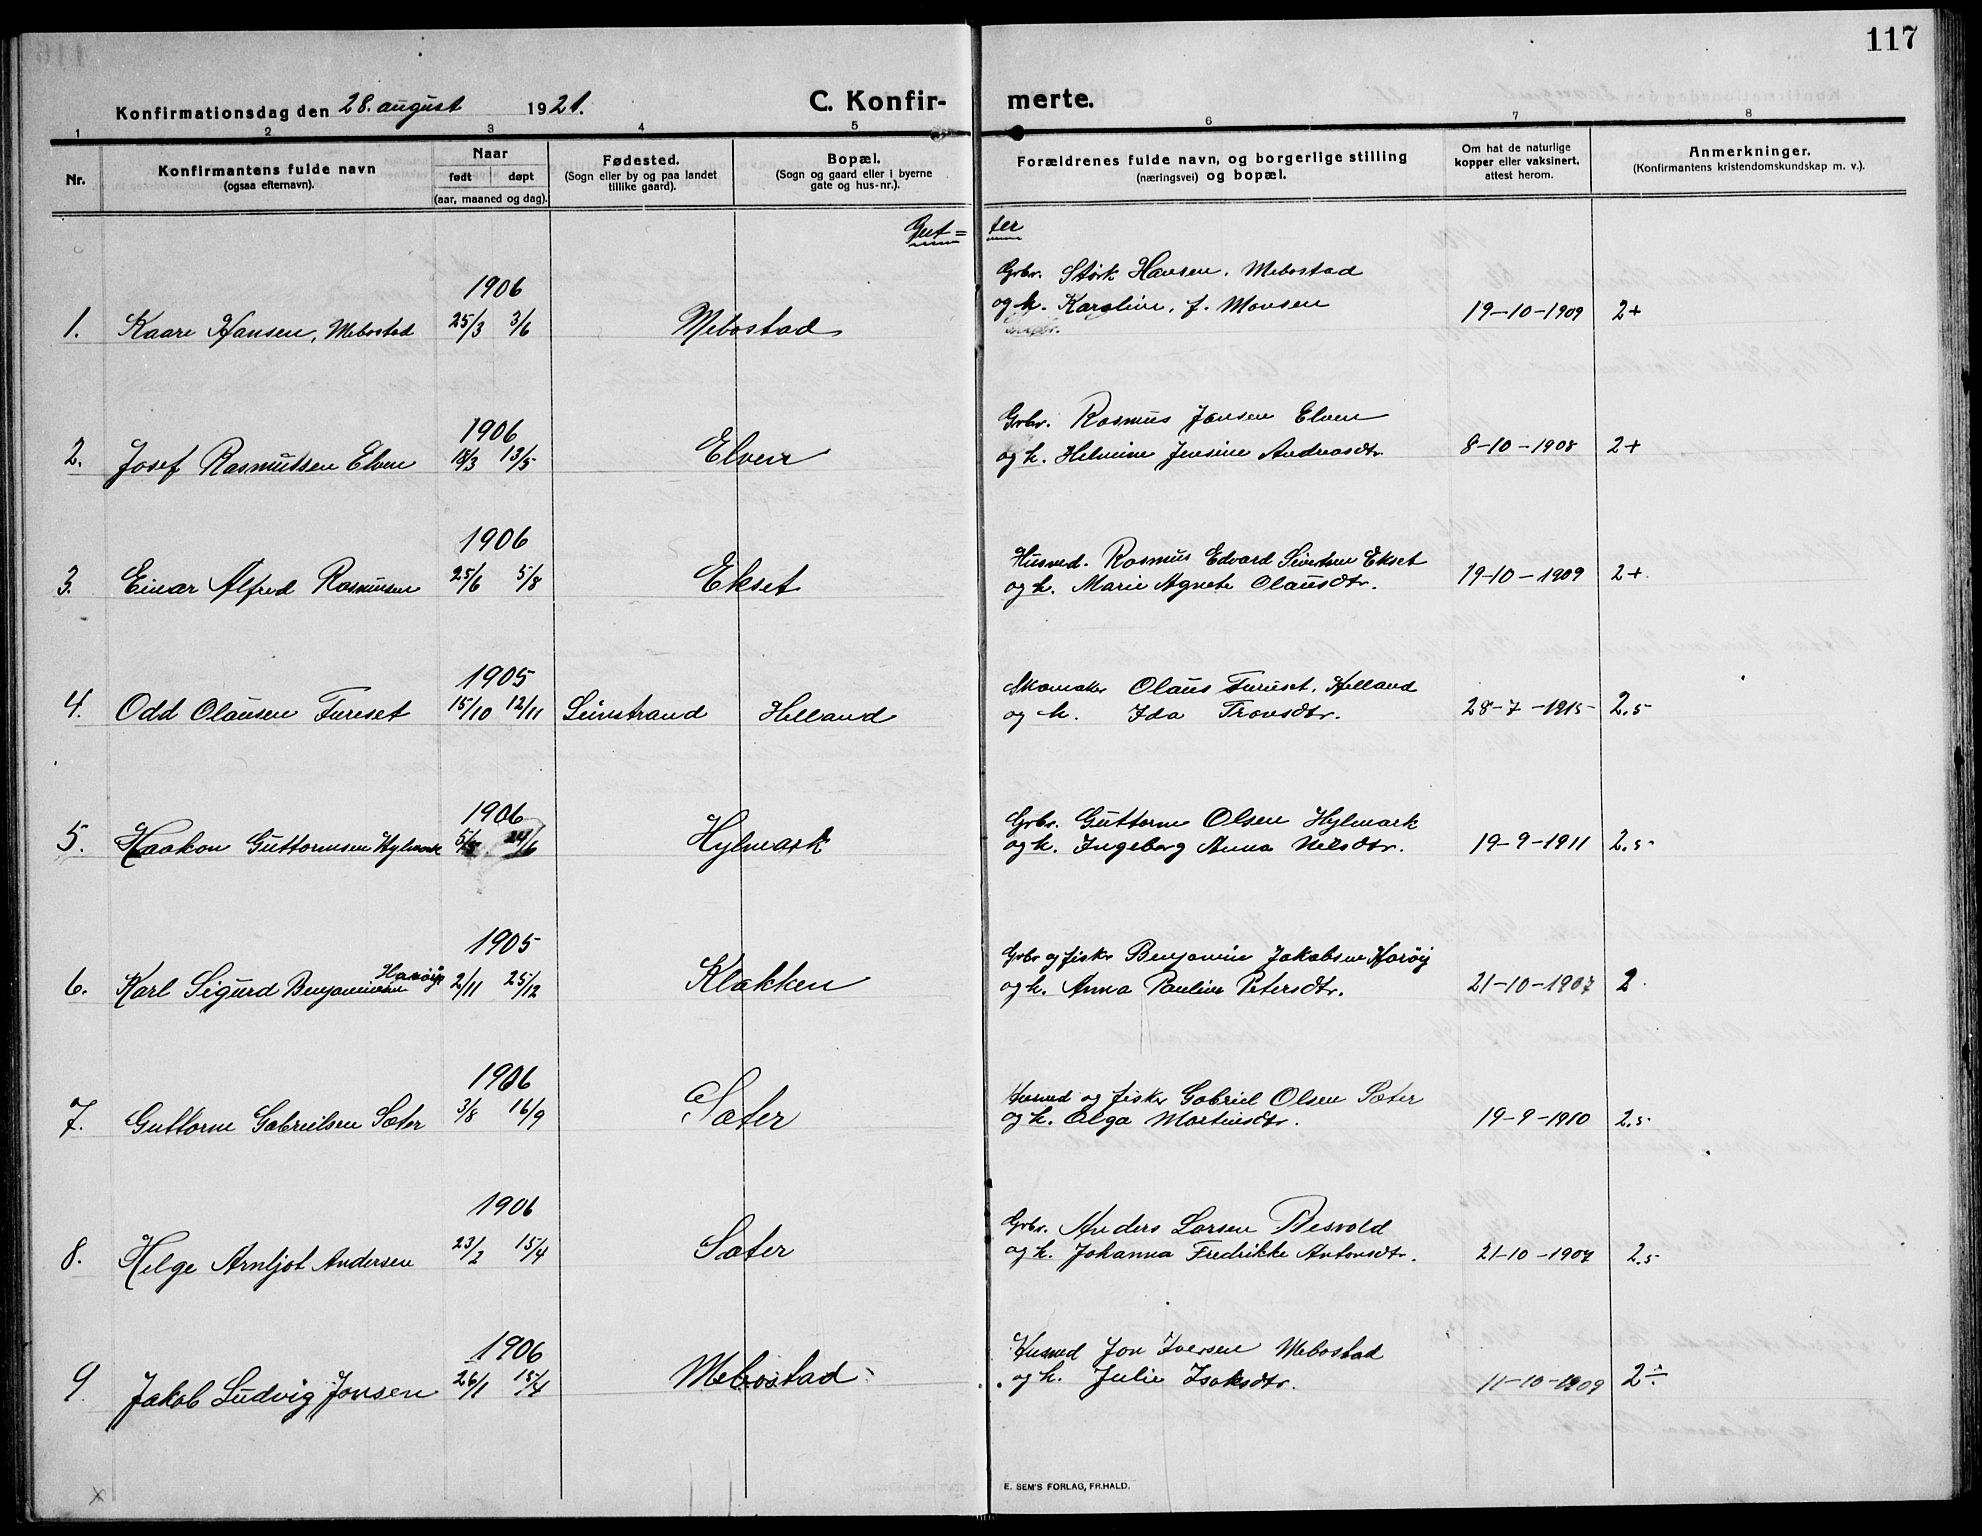 117
Konfirmationsdag den 28. august 1921.
C. Konfir- merte.
1 2 3 4 5 6 7 8
Nr.
Konfirmantens fulde navn
(ogsaa efternavn).
Naar
født døpt
(aar, maaned og dag).
Fødested.
(Sogn eller by og paa landet
tillike gaard).
Bopæl.
(Sogn og gaard eller i byerne
gate og hus-nr.).
Forældrenes fulde navn, og borgerlige stilling
(næringsvei) og bopæl.
Om hat de naturlige
kopper eller vaksinert,
attest herom.
Anmerkninger.
(Konfirmantens kristendomskundskap m. v.).
Gut= ter
1906
Grbr. Størk Hansen, Mebostad
1. Kaare Hansen, Mebostad 25/3 3/6 Mebostad
og h. Karoline, f. Monsen 19-10-1909 2+
1906
Grbr. Rasmus Jonsen Elven
2. Josef Rasmussen Elven 18/3 13/5 Elven
og h. Helmine Jensine Andreasdtr. 8-10-1908 2+
1906
Husmd. Rasmus Edvard Sivertsen Ekset
3. Einar Alfred Rasmussen 25/6 5/8 Ekset
og h. Marie Agnete Olausdtr. 19-10-1909 2+
1905
Skomaker Olaus Fureset, Helland
4. Odd Olausen Fureset 15/10 12/11 Hellands
og h. Ida Tronsdtr. 28-7-1915 2,5
1906
Grbr. Guttorm Olsen Hylmark
5. Haakon Guttormsen Hylmark 24/6 Hylmark
og h. Ingeborg Anna Nilsdtr. 19-9-1911 2,5
1905
Grbr og fisker Benjamin Jakobsen Harøy
6. Karl Sigurd Benjaminsen Harøy 2/11 25/12 Klokken
og h. Anna Pauline Petersdtr. 21-10-1907 2
1906
Husmd og fisker Gabriel Olsen Sæter
7. Guttorm Gabrielsen Sæter 3/8 16/9 Sæter
og h. Elga Martinsdtr. 19-9-1910 2,5
1906
Grbr. Anders Larsen
8. Helge Arnljot Andersen 23/2 15/4 Sæter
og h. Johanna Fredrikke Antonsdtr. 21-10-1907 2,5
1906
Husmd Jon Iversen Mebostad
9 Jakob Ludvig Jonsen 26/1 15/4 Mebostad
og h. Julie Isaksdtr. 11-10-1909 2÷
E. SEM'S FORLAG, FR.HALD.